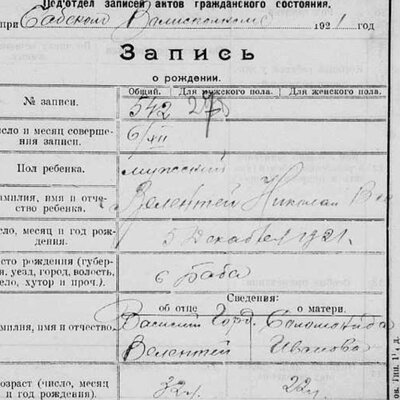 Под'отдел записей актов гражданского состояния.
при Бабском Волисполкоме 1921 год
Запись
о рождении.
Общий. Для мужского пола. Для женского пола.
№ записи. 542 275
исло и месяц соверше-
ния записи. 6/XII
Пол ребенка. мужской
амилия, имя и отче-
ство ребенка. Велентей Николай Вас
сло, месяц и год рож-
дения. 5 Декабря 1921г.
сто рождения (губер-
я, уезд, город, волость,
ело, хутор и проч.). с Баба
Сведения:
об отце о матери.
амилия, имя и отчество. Василий Соломонида
Велентей Иванова
озраст (число, месяц
и год рождения). 32г. 22г.